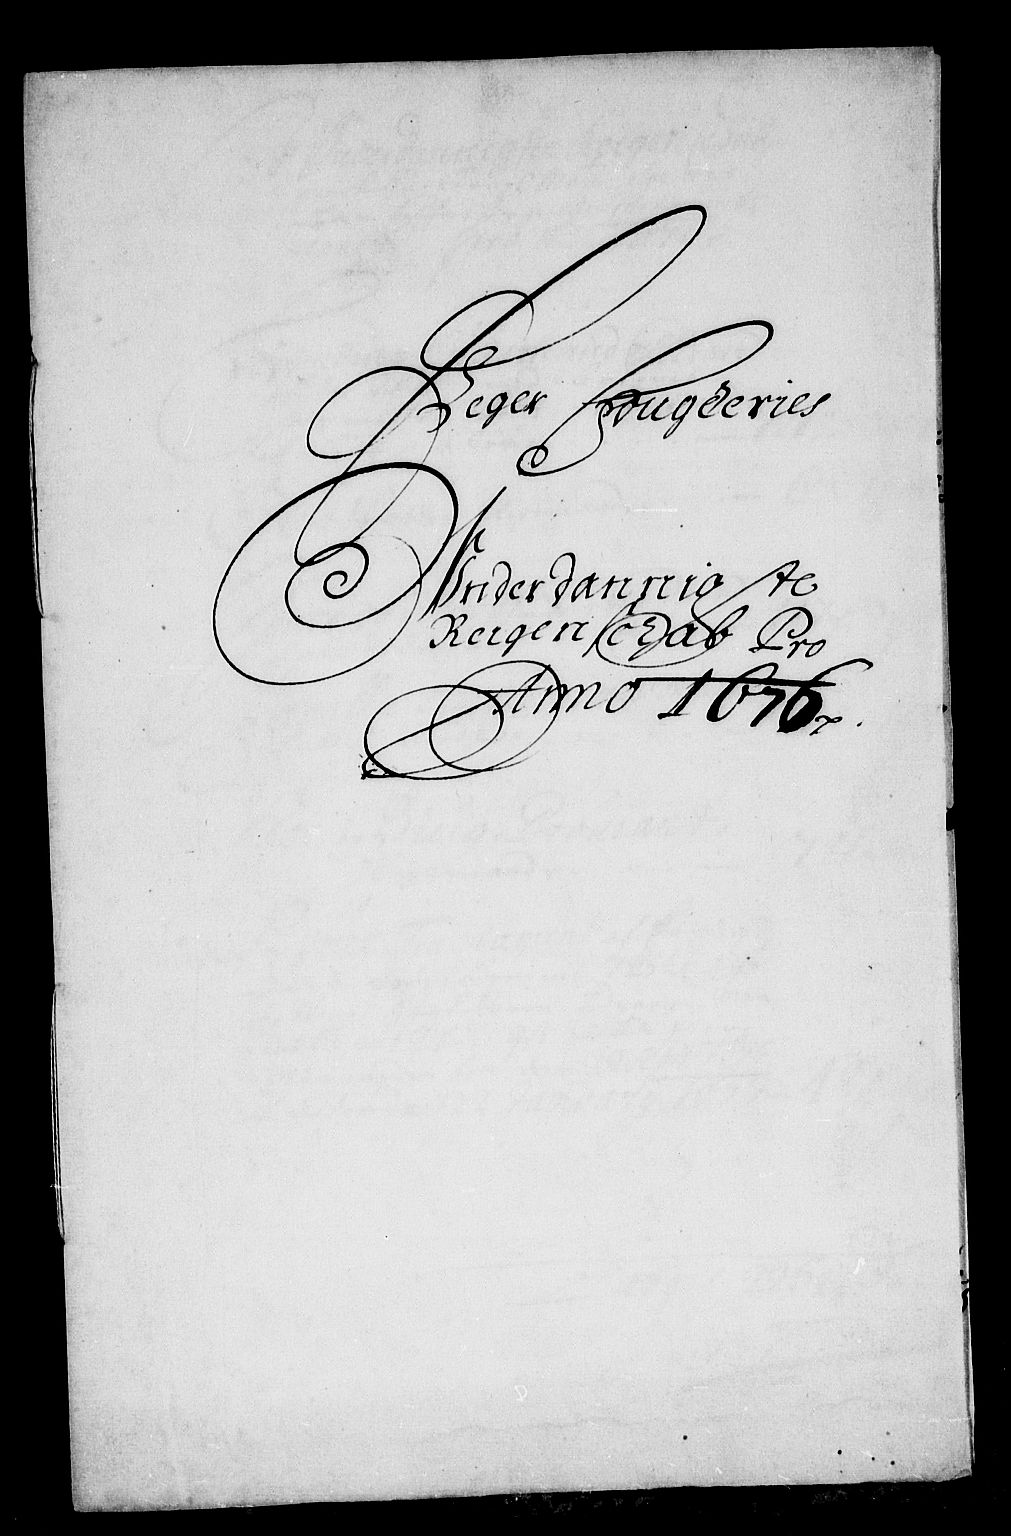 Peger Fougderies
Underdannigste
Reigenschab Pro
Anno 1676